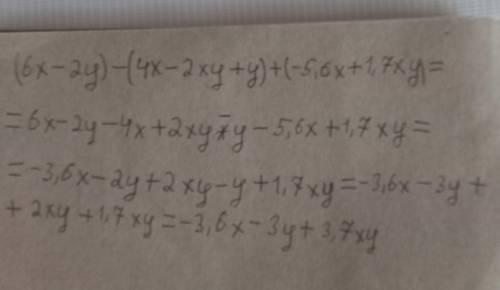 (6x-2y)-(4x-2xy+y)+(-5,6x+1,7xy)=
=6x-2y-4x+2xy-y-5,6x+1,7xy=
=-3,6x-2y+2xy-y+1,7xy=-3,6x-3y+
+2xy+1,7xy=-3,6x-3y+3,7xy